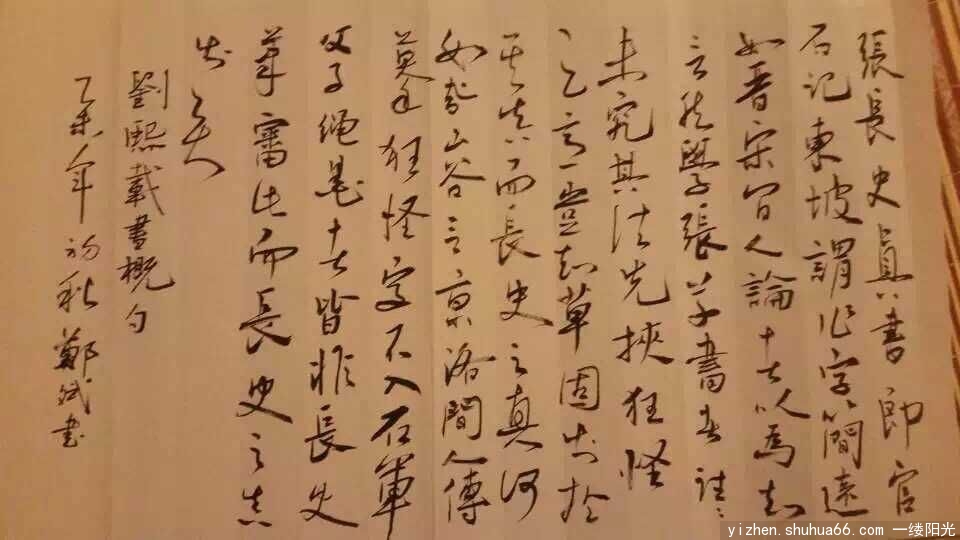 張長史眞書郎官
石記東坡謂作字簡遠
如晋宋間人論者以為知
言然學張草書者往〻
未究其法先挾狂怪
之意豈知草固出於
其真而長史之真何
如哉山谷言京洛間人傳
摹狂怪字不入右軍
父子绳墨者皆非長史
筆審此而長史之真
出矣
劉熙載書概句
乙未年初秋鄭斌書
yizhen.shuhua66.com 一缕阳光